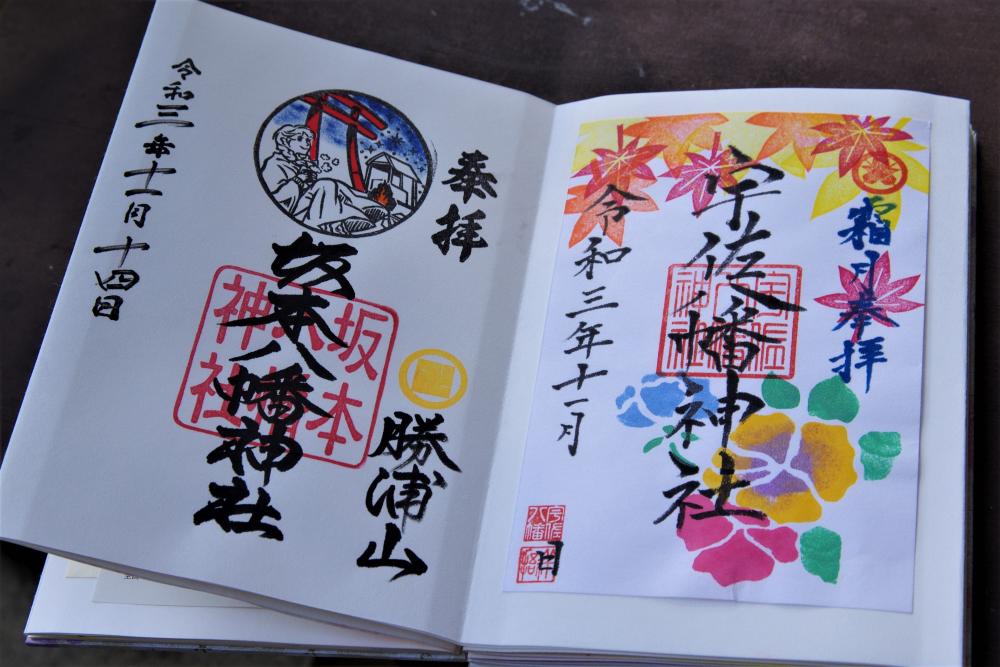 奉拝
勝浦山
坂本八幡神社
坂本八幡神社
令和三年十一月十四日
霜月奉拝
宇佐八幡神社
宇佐八幡神社
令和三年十一月
日
宇佐八幡